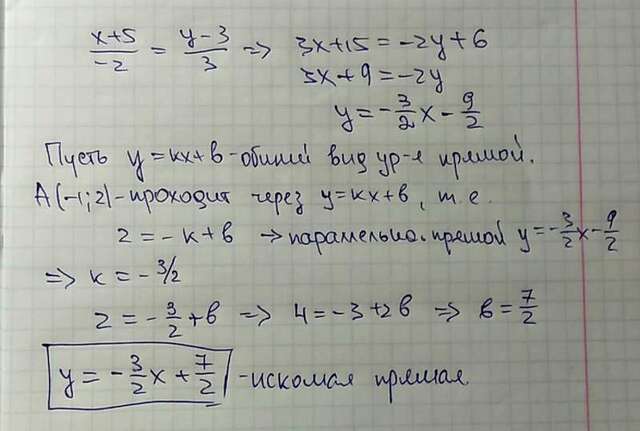 (x+5)/(-2) = (y-3)/3 => 3x+15 = -2y+6
3x+9 = -2y
y = -3/2 x - 9/2
Пусть y=kx+b - общий вид ур-я прямой.
A(-1;2) - проходит через y=kx+b, т.е.
2 = -k+b → параллельно. прямой y = -3/2 x - 9/2
=> k = -3/2
2 = -3/2 + b => 4 = -3+2b => b = 7/2
y = -3/2 x + 7/2 - искомая прямая.